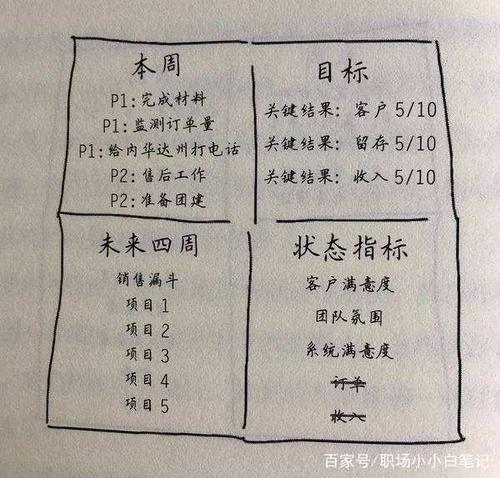 本周
P1:完成材料
P1:监测订单量
P1:给内华达州打电话
P2:售后工作
P2:准备团建
目标
关键结果: 客户 5/10
关键结果: 留存 5/10
关键结果: 收入 5/10
未来四周
销售漏斗
项目 1
项目 2
项目 3
项目 4
项目 5
状态指标
客户满意度
团队氛围
系统满意度
订单
收入
百家号/职场小小白笔记